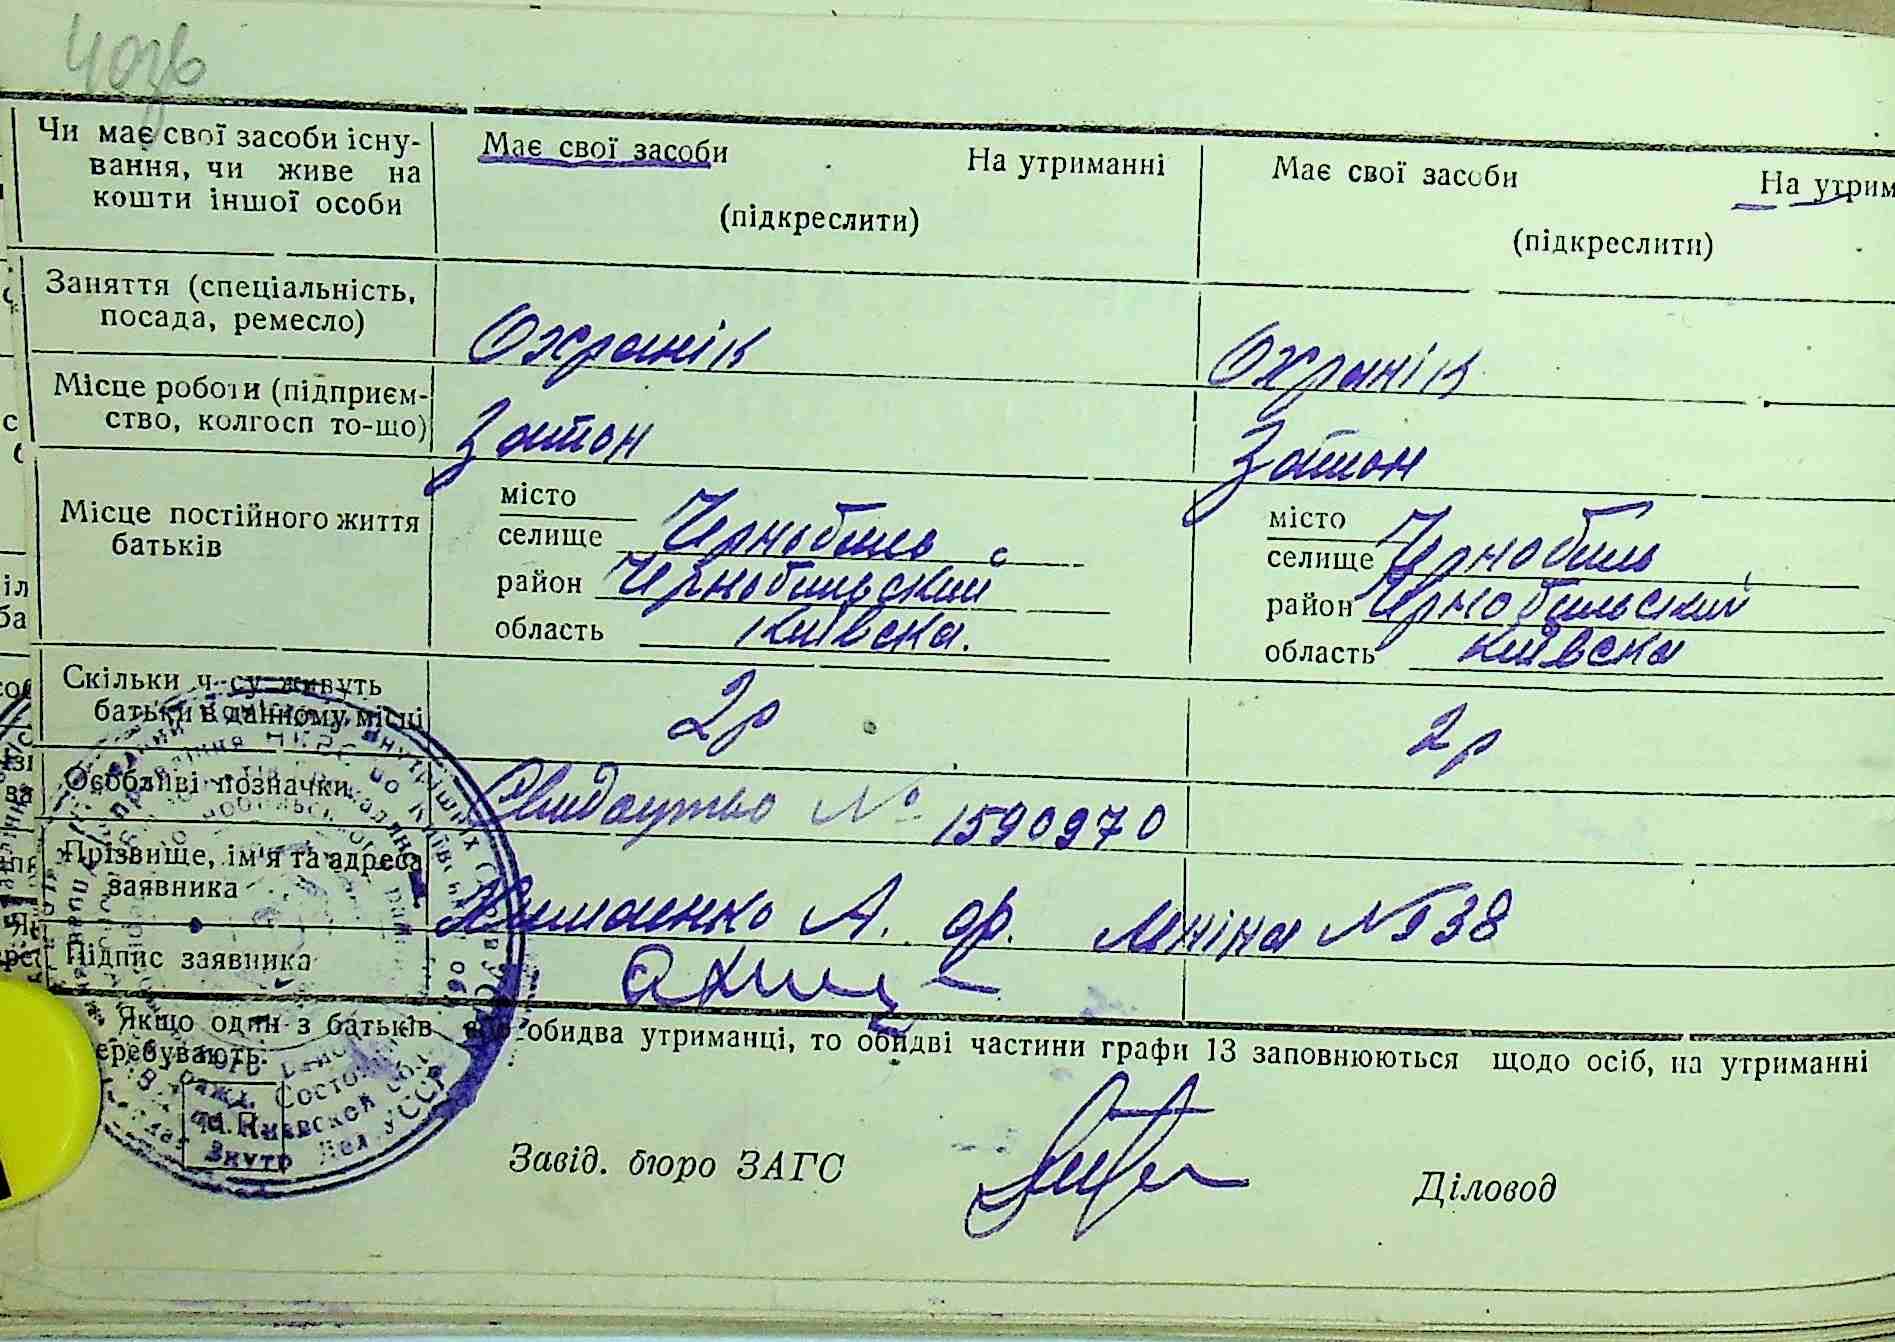 Чи має свої засоби існу-
вання, чи живе на
кошти іншої особи
Має свої засоби На утриманні
(підкреслити)
Має свої засоби На утрим
(підкреслити)
Заняття (спеціальність,
посада, ремесло)
Охранік Охранік
Місце роботи (підприєм-
ство, колгосп то-що)
Затон Затон
Місце постійного життя
батьків
місто
селище Чернобиль
район Чернобильский
область Київска.
місто
селище Чернобиль
район Чернобильский
область Київска
Скільки ч су живуть
батьки в данному місці
2р 2р
Особливі позначки
Свидоцтво № 1590970
Прізвище, ім'я та адреса
заявника
А. Леніна № 38
Підпис заявника
Якщо один з батьків обидва утриманці, то обидві частини графи 13 заповнюються щодо осіб, на утриманні
еребувають:
М.П.
Завід. бюро ЗАГС
Діловод